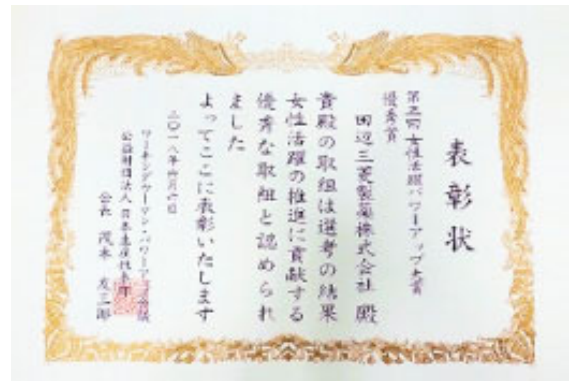 表彰状
第五回女性活躍パワーアップ大賞
優秀賞
田辺三菱製薬株式会社 殿
貴殿の取組は選考の結果
女性活躍の推進に貢献する
優秀な取組と認められ
ました
よってここに表彰いたします
二〇一八年 月 日
ワーキングウーマン・パワーアップ会議
公益財団法人 日本生産性本部
会長 茂木 友三郎